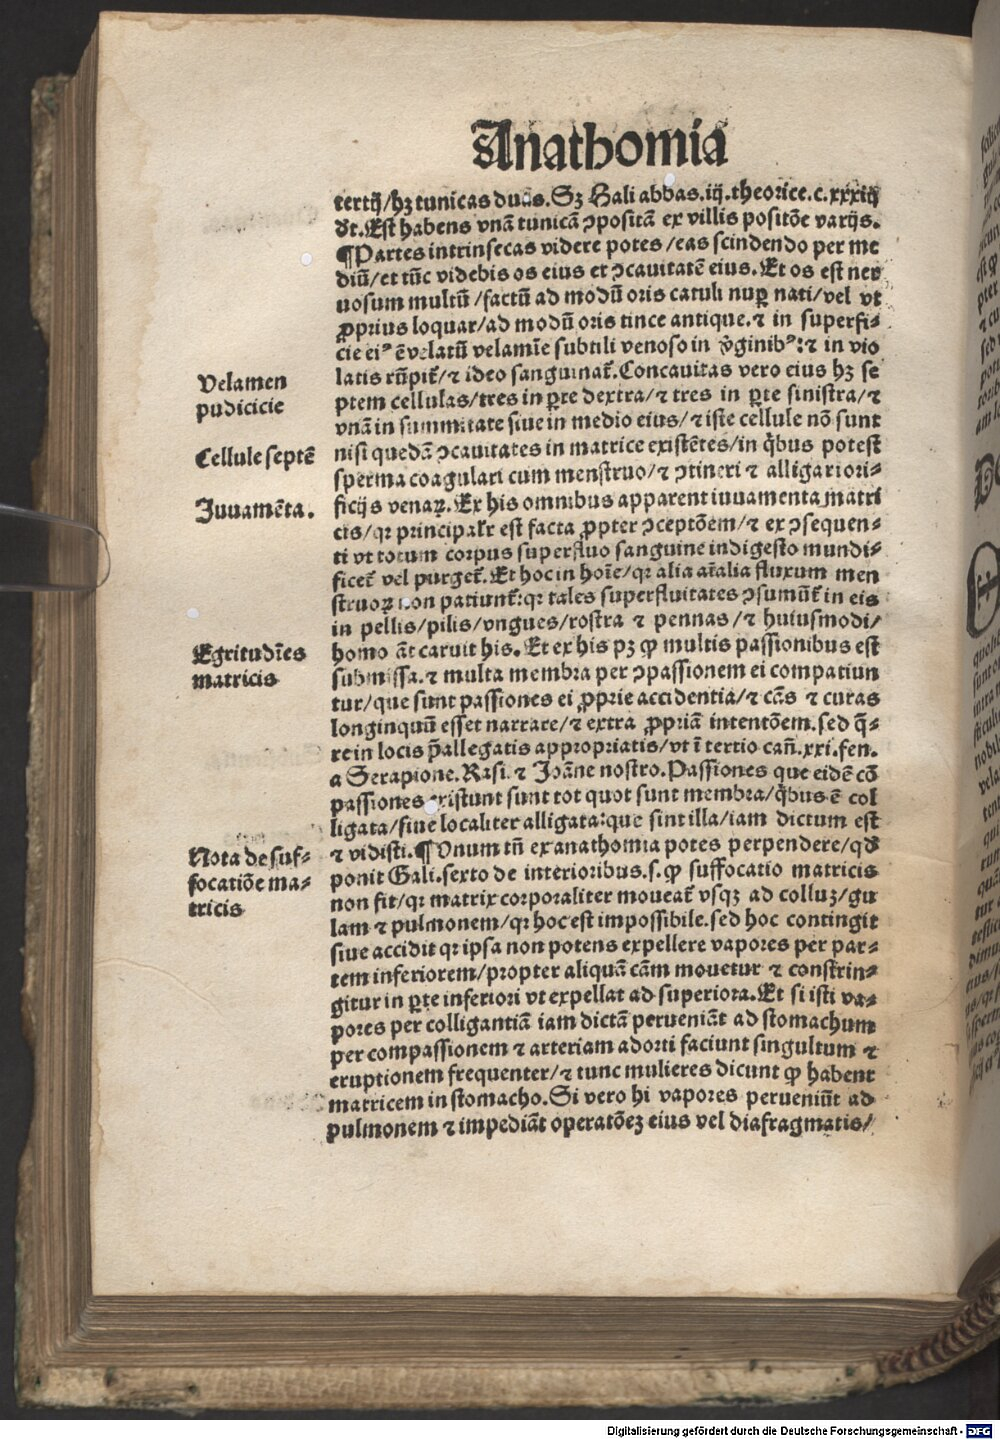 Anathomia
tertij/hꝫ tunicas duas. Sꝫ Hali abbas.iij.theorice.c.xxxiij
dt. Est habens vnã tunicã ↄpositã ex villis positõe varijs.
¶Partes intrinsecas videre potes/eas scindendo per me
diũ/et tũc videbis os eius et ↄcauitatẽ eius. Et os est ner
uosum multũ/factũ ad modũ oris catuli nuꝑ nati/vel vt
ꝓprius loquar/ad modũ oris tince antique.⁊ in superfi⸗
cie ei⁹ ẽ velatũ velamĩe subtili venoso in v̓ginib⁹:⁊ in vio
latis rũpit᷑/⁊ ideo sanguinat᷑. Concauitas vero eius hꝫ se
Velamen
pudicicie
ptem cellulas/tres in ꝑte dextra/⁊ tres in ꝑte sinistra/⁊
vnã in summitate siue in medio eius/⁊ iste cellule nõ sunt
Cellule septẽ
nisi quedã ↄcauitates in matrice existẽtes/in q̇bus potest
sperma coagulari cum menstruo/⁊ ↄtineri ⁊ alligari ori⸗
Juuamẽta.
ficijs venaꝝ. Ex his omnibus apparent iuuamenta matri
cis/qꝛ principalr̓ est facta ꝓpter ↄceptõem/⁊ ex ↄsequen⸗
ti vt totum corpus superfluo sanguine indigesto mundi⸗
ficet᷑ vel purget᷑. Et hoc in hoĩe/qꝛ alia aĩalia fluxum men
struoꝝ non patiunt᷑:qꝛ tales superfluitates ↄsumũt᷑ in eis
in pellis/pilis/vngues/rostra ⁊ pennas/⁊ huiusmodi/
Egritudĩes
matricis
homo ãt caruit his. Et ex his pꝫ ꝙ multis passionibus est
submissa.⁊ multa membra per ↄpassionem ei compatiun
tur/que sunt passiones ei ꝓprie accidentia/⁊ cãs ⁊ curas
longinquũ esset narrare/⁊ extra ꝓpriã intentõem.sed q̃⸗
re in locis p̃allegatis appropriatis/vt ĩ tertio cañ.xxi.fen.
a Serapione. Rasi.⁊ Joãne nostro. Passiones que eidẽ cõ
passiones existunt sunt tot quot sunt membra/q̇bus ẽ col
ligata/siue localiter alligata:que sint illa/iam dictum est
Nota de suf⸗
focatiõe ma⸗
tricis
⁊ vidisti.¶Vnum tñ ex anathomia potes perpendere/qđ
ponit Gali.sexto de interioribus.s.ꝙ suffocatio matricis
non fit/qꝛ matrix corporaliter moueat᷑ vsqꝫ ad colluꝫ/gu
lam ⁊ pulmonem/qꝛ hoc est impossibile.sed hoc contingit
siue accidit qꝛ ipsa non potens expellere vapores per par⸗
tem inferiorem/propter aliquã cãm mouetur ⁊ constrin⸗
gitur in ꝑte inferiori vt expellat ad superiora. Et si isti va⸗
pores per colligantiã iam dictã perueniãt ad stomachum
per compassionem ⁊ arteriam adorti faciunt singultum ⁊
eruptionem frequenter/⁊ tunc mulieres dicunt ꝙ habent
matricem in stomacho. Si vero hi vapores perueniũt ad
pulmonem ⁊ impediãt operatõeꝫ eius vel diafragmatis/
Digitalisierung gefördert durch die Deutsche Forschungsgemeinschaft - DFG